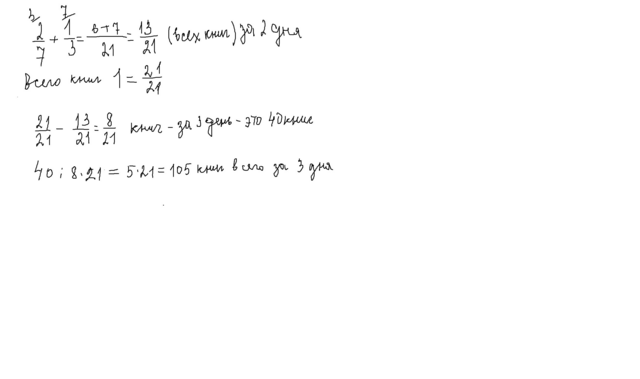 3 7
2/7 + 1/3 = 6+7/21 = 13/21 (всех книг) за 2 дня
Всего книг 1 = 21/21
21/21 - 13/21 = 8/21 книг - за 3 день - это 40 книг
40 : 8 · 21 = 5 · 21 = 105 книг всего за 3 дня